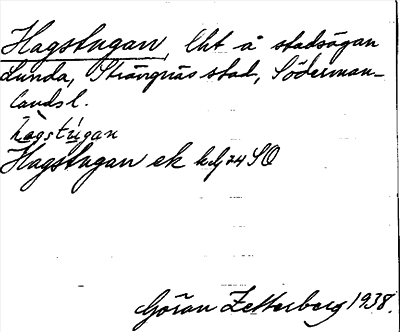 Hagstugan, lht å stadsägan
Lunda, Strängnäs stad, Söderman-
lands l.
hàgstúgan
Hagstugan ek bl 24 SO
Göran Zetterberg 1938.